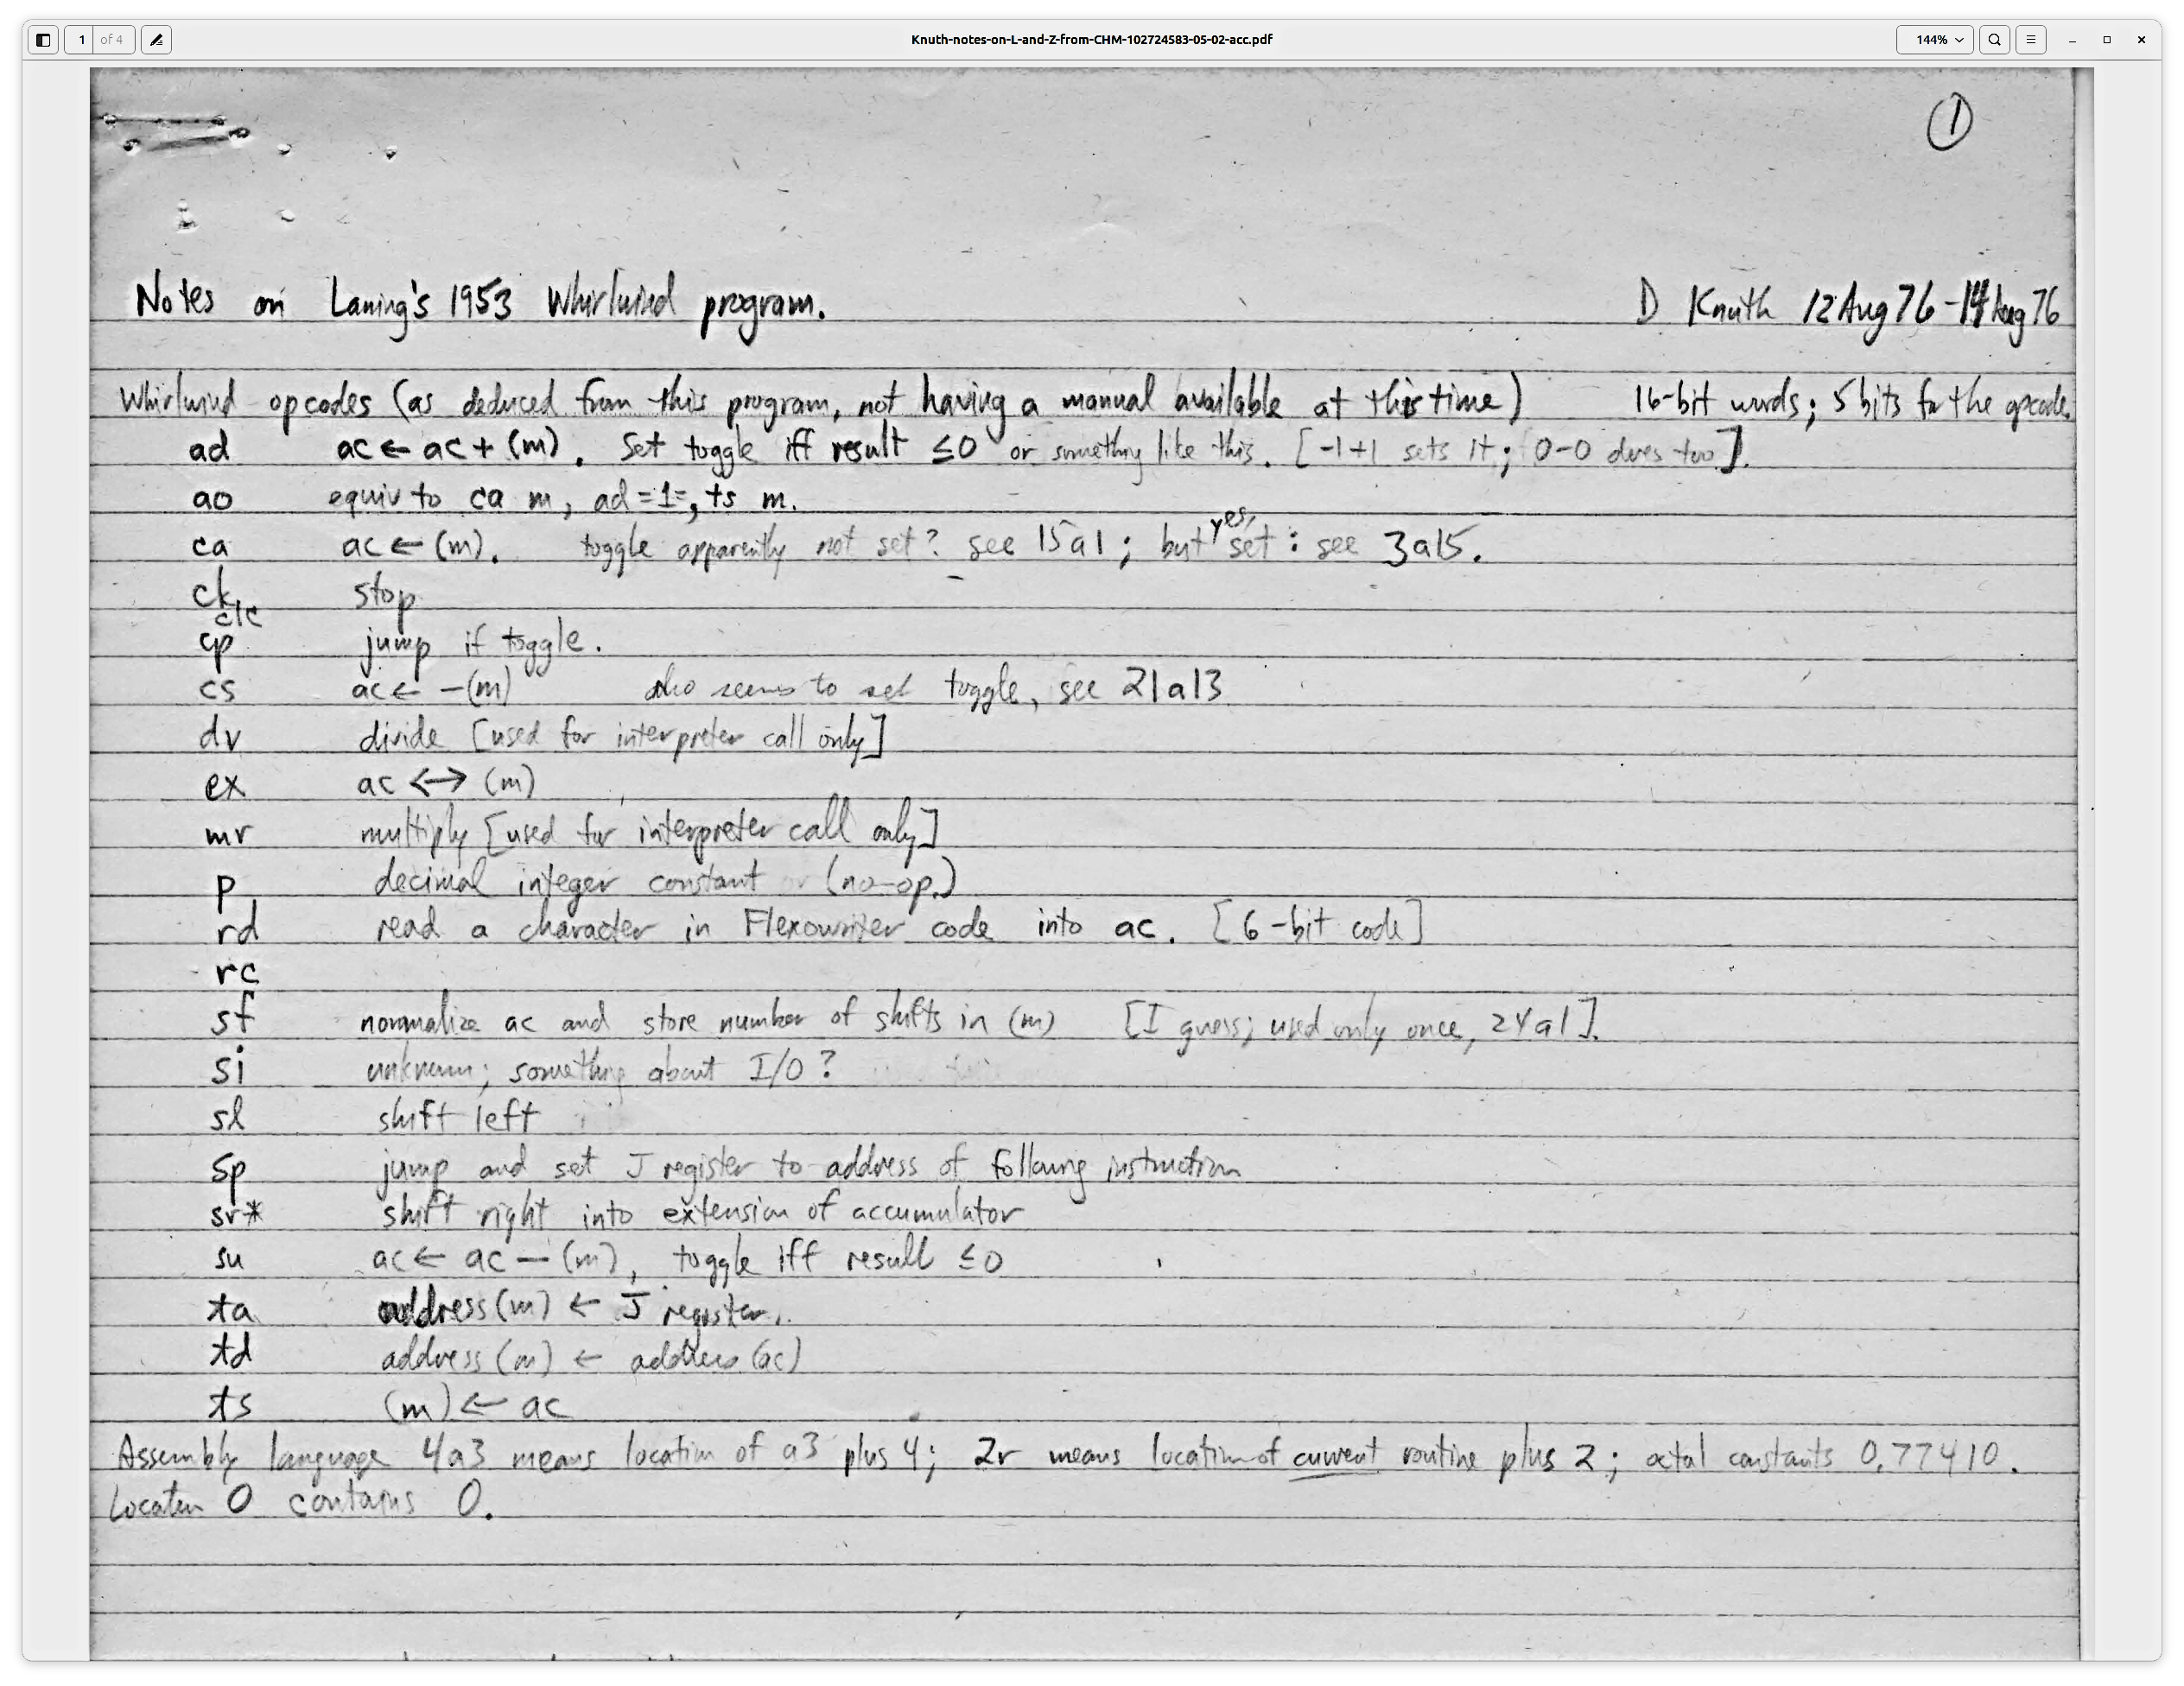 1 of 4 Knuth-notes-on-L-and-Z-from-CHM-102724583-05-02-acc.pdf 144%
1
Notes on Laning's 1953 Whirlwind program. D Knuth 12 Aug 76 - 14 Aug 76
Whirlwind opcodes (as deduced from this program, not having a manual available at this time) 16-bit words; 5 bits for the opcode.
ad ac ← ac + (m). Set toggle iff result ≤0 or something like this. [-1+1 sets it; 0-0 does too].
ao equiv to ca m, ad =1=, ts m.
ca ac ← (m). toggle apparently not set? see 15a1; but yes, set: see 3a15.
ck stop
clc
cp jump if toggle.
cs ac ← -(m) also seems to set toggle, see 21a13
dv divide [used for interpreter call only]
ex ac ↔ (m)
mr multiply [used for interpreter call only]
p decimal integer constant or (no-op.)
rd read a character in Flexowriter code into ac. [6-bit code]
rc
sf normalize ac and store number of shifts in (m) [I guess; used only once, 24a1].
si unknown; something about I/O?
sl shift left
sp jump and set J register to address of following instruction
sr* shift right into extension of accumulator
su ac ← ac - (m), toggle iff result ≤0
ta address (m) ← J register.
td address (m) ← address (ac)
ts (m) ← ac
Assembly language 4a3 means location of a3 plus 4; 2r means location of current routine plus 2; octal constants 0.77410.
Location 0 contains 0.